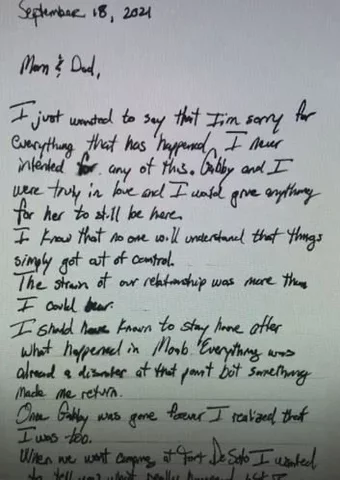 September 18, 2021
Mom & Dad,
I just wanted to say that I'm sorry for
everything that has happened, I never
intended for any of this. Gabby and I
were truly in love and I would give anything
for her to still be here.
I know that no one will understand that things
simply got out of control.
The strain of our relationship was more than
I could bear.
I should have known to stay home after
what happened in Moab. Everything was
already a disaster at that point but something
made me return.
Once Gabby was gone forever I realized that
I was too.
When we went camping at Fort DeSoto I wanted
to tell you what really happened but I